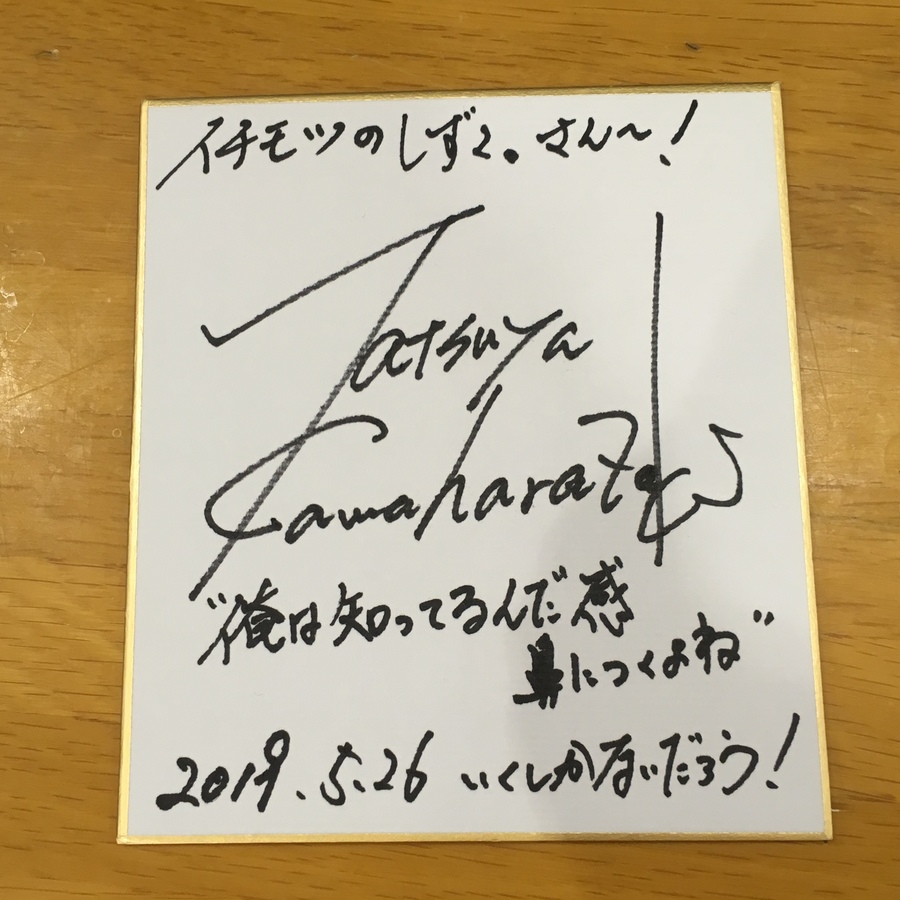 イチモツのしずく。さん〜!
Tatsuya
Kawaharazuka
"俺は知ってるんだ感
鼻につくよね"
2019.5.26 いくしかないだろう!